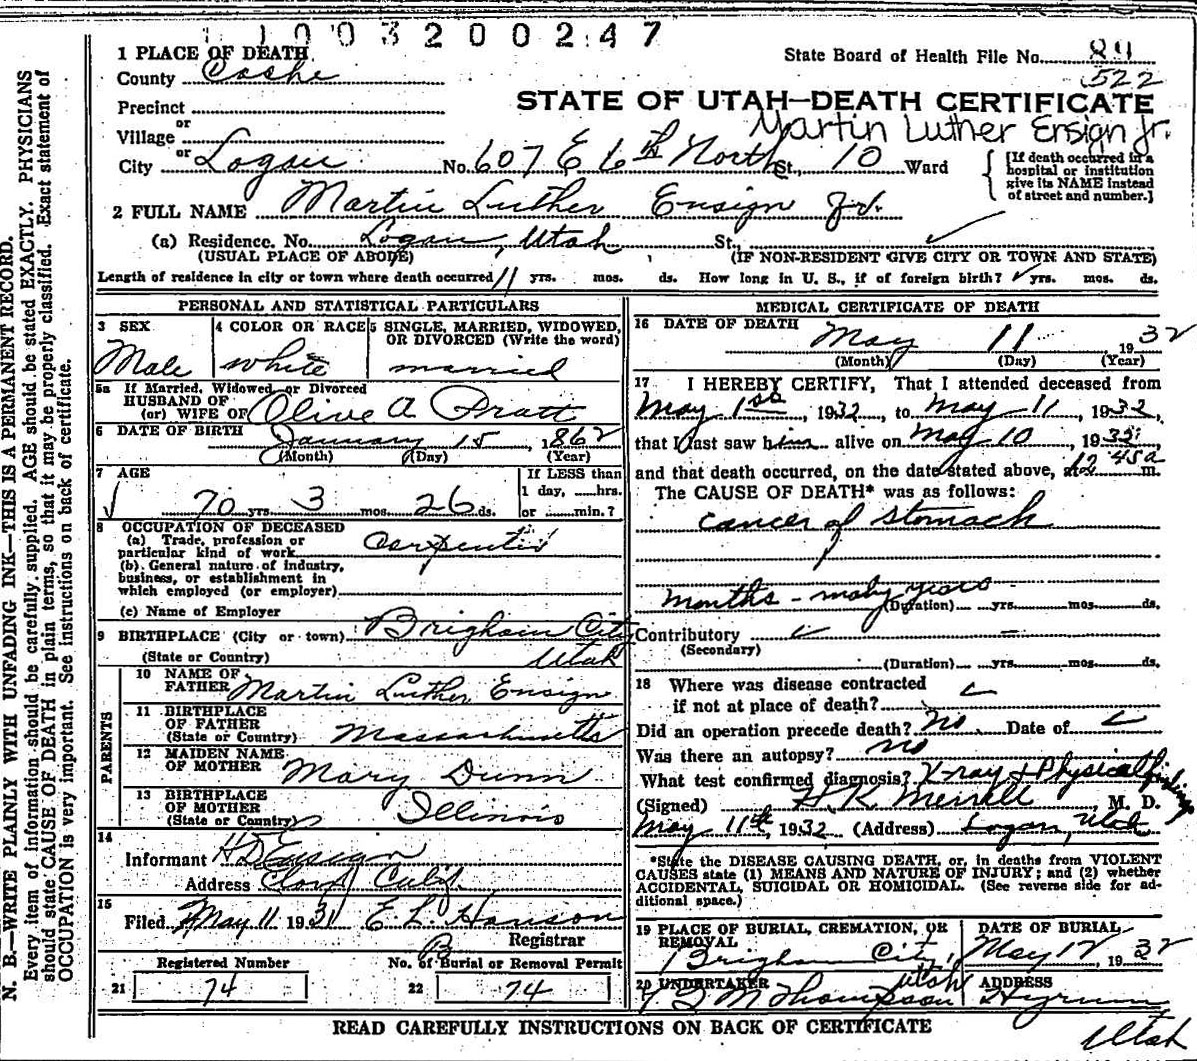 1003200247
1 PLACE OF DEATH
State Board of Health File No. 89
County Cache
522
Precinct
STATE OF UTAH—DEATH CERTIFICATE
or
Village
Martin Luther Ensign Jr.
or
City Logan No. 607 E 6th North St., 10 Ward
[If death occurred in a
hospital or institution
give its NAME instead
of street and number.]
2 FULL NAME Martin Luther Ensign Jr.
(a) Residence. No. Logan, Utah St.,
(USUAL PLACE OF ABODE) (IF NON-RESIDENT GIVE CITY OR TOWN AND STATE)
Length of residence in city or town where death occurred 11 yrs. mos. ds. How long in U. S., if of foreign birth? yrs. mos. ds.
PERSONAL AND STATISTICAL PARTICULARS
3 SEX
Male
4 COLOR OR RACE
white
5 SINGLE, MARRIED, WIDOWED,
OR DIVORCED (Write the word)
married
5a If Married, Widowed or Divorced
HUSBAND OF
(or) WIFE OF Olive A. Pratt
6 DATE OF BIRTH January 15 1862
(Month) (Day) (Year)
7 AGE
70 yrs. 3 mos. 26 ds.
If LESS than
1 day, hrs.
or min.?
8 OCCUPATION OF DECEASED
(a) Trade, profession or
particular kind of work Carpenter
(b) General nature of industry,
business, or establishment in
which employed (or employer)
(c) Name of Employer
9 BIRTHPLACE (City or town) Brigham City
(State or Country) Utah
PARENTS
10 NAME OF
FATHER Martin Luther Ensign
11 BIRTHPLACE
OF FATHER
(State or Country) Massachusetts
12 MAIDEN NAME
OF MOTHER Mary Dunn
13 BIRTHPLACE
OF MOTHER
(State or Country) Illinois
14
Informant H D Ensign
Address Calif.
15
Filed May 11 1931 E. L. Hanson
Registrar
Registered Number No. of Burial or Removal Permit
21 74 22 74
MEDICAL CERTIFICATE OF DEATH
16 DATE OF DEATH
May 11 1932
(Month) (Day) (Year)
17 I HEREBY CERTIFY, That I attended deceased from
May 1st, 1932, to May 11, 1932,
that I last saw him alive on May 10, 1932
and that death occurred, on the date stated above, at 12 45a m.
The CAUSE OF DEATH* was as follows:
cancer of stomach
months - maby years
(Duration) yrs. mos. ds.
Contributory
(Secondary)
(Duration) yrs. mos. ds.
18 Where was disease contracted
if not at place of death?
Did an operation precede death? No Date of
Was there an autopsy? no
What test confirmed diagnosis? X-ray & Physical findings
(Signed) H K Merrill, M. D.
May 11th, 1932 (Address) Logan, Utah
*State the DISEASE CAUSING DEATH, or, in deaths from VIOLENT
CAUSES state (1) MEANS AND NATURE OF INJURY; and (2) whether
ACCIDENTAL, SUICIDAL OR HOMICIDAL. (See reverse side for ad-
ditional space.)
19 PLACE OF BURIAL, CREMATION, OR
REMOVAL
Brigham City, Utah
DATE OF BURIAL
May 12, 1932
20 UNDERTAKER
Thompson
ADDRESS
Hyrum
Utah
READ CAREFULLY INSTRUCTIONS ON BACK OF CERTIFICATE
N. B.—WRITE PLAINLY WITH UNFADING INK—THIS IS A PERMANENT RECORD.
Every item of information should be carefully supplied. AGE should be stated EXACTLY. PHYSICIANS
should state CAUSE OF DEATH in plain terms, so that it may be properly classified. Exact statement of
OCCUPATION is very important. See instructions on back of certificate.